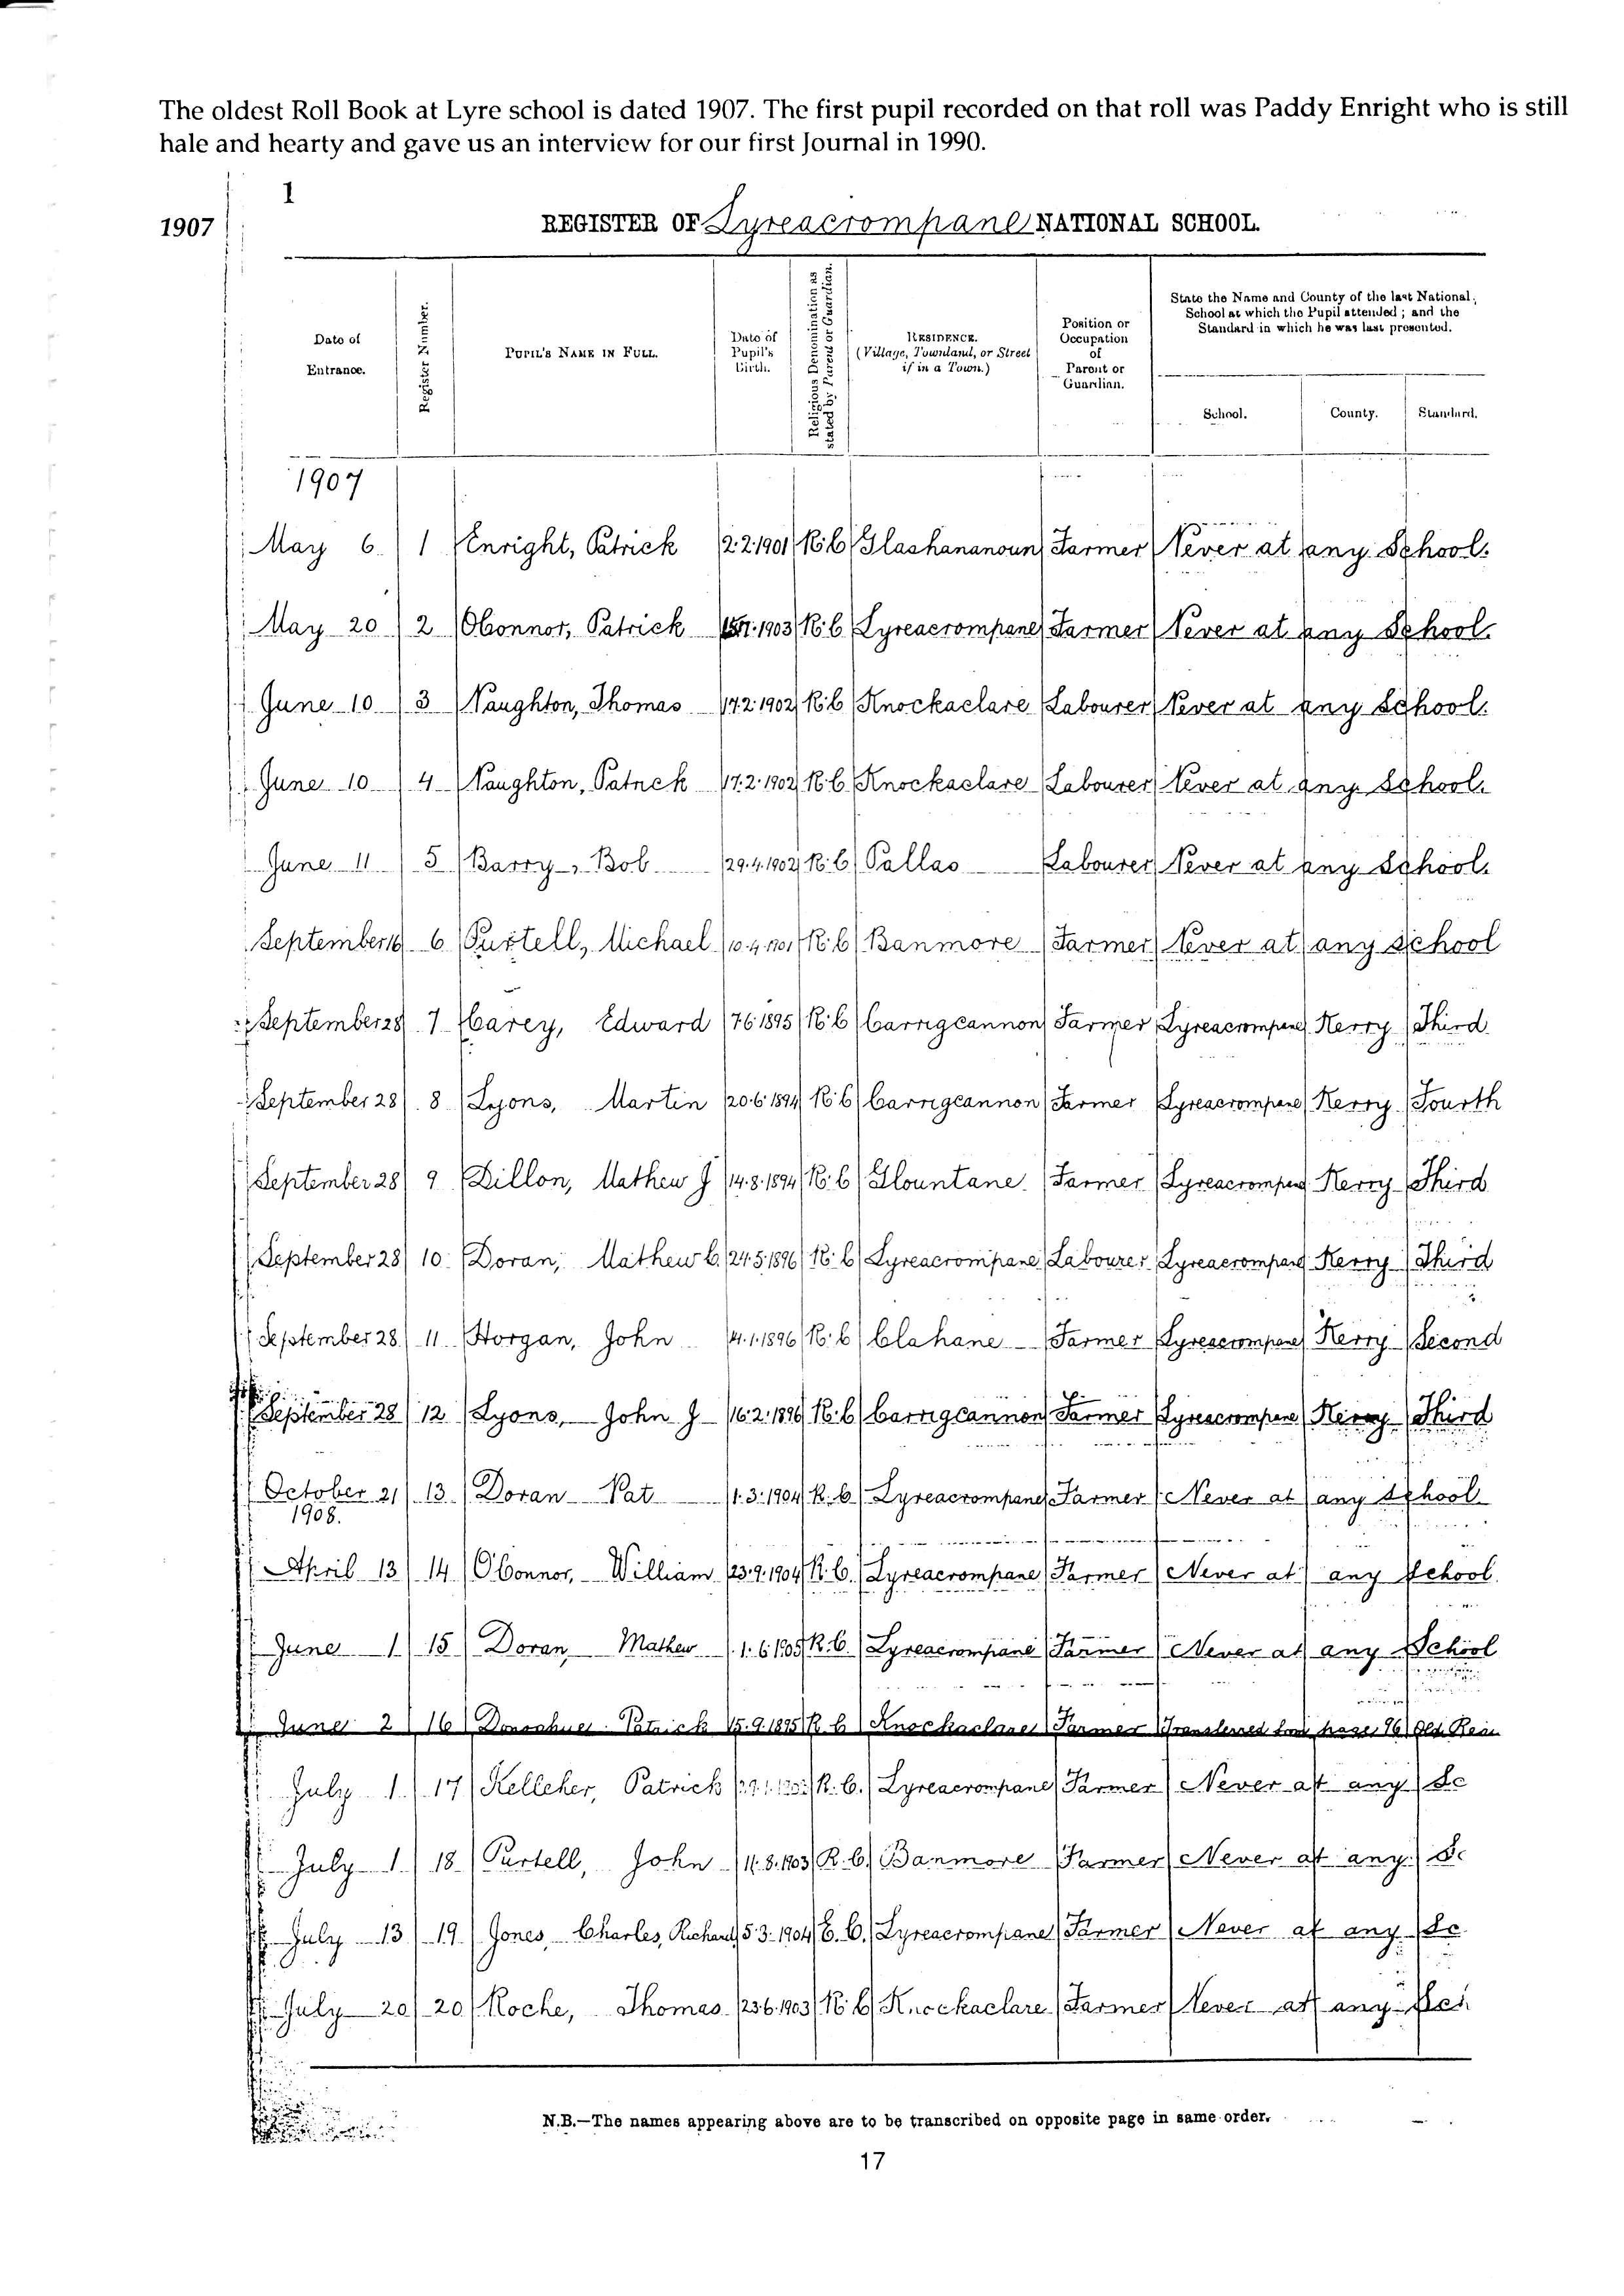 The oldest Roll Book at Lyre school is dated 1907. The first pupil recorded on that roll was Paddy Enright who is still
hale and hearty and gave us an interview for our first Journal in 1990.
1
1907
REGISTER OF Lyreacrompane NATIONAL SCHOOL.
Date of Entrance.
Register Number.
PUPIL'S NAME IN FULL.
Date of Pupil's Birth.
Religious Denomination as stated by Parent or Guardian.
RESIDENCE. (Village, Townland, or Street if in a Town.)
Position or Occupation of Parent or Guardian.
State the Name and County of the last National School at which the Pupil attended; and the Standard in which he was last presented.
School. County. Standard.
1907
May 6 1 Enright, Patrick 2.2.1901 R.C Glashananoun Farmer Never at any School.
May 20 2 OConnor, Patrick 1903 R.C Lyreacrompane Farmer Never at any School.
June 10 3 Naughton, Thomas 17.2.1902 R.C Knockaclare Labourer Never at any School.
June 10 4 Naughton, Patrick 17.2.1902 R.C Knockaclare Labourer Never at any School.
June 11 5 Barry, Bob 29.4.1902 R.C Pallas Labourer Never at any School.
September 16 6 Purtell, Michael 10.4.1901 R.C Banmore Farmer Never at any School
September 28 7 Carey, Edward 7.6.1895 R.C Carrigcannon Farmer Lyreacrompane Kerry Third
September 28 8 Lyons, Martin 20.6.1894 R.C Carrigcannon Farmer Lyreacrompane Kerry Fourth
September 28 9 Dillon, Mathew J 14.8.1894 R.C Glountane Farmer Lyreacrompane Kerry Third
September 28 10 Doran, Mathew C. 24.5.1896 R.C Lyreacrompane Labourer Lyreacrompane Kerry Third
September 28 11 Horgan, John 14.1.1896 R.C Clahane Farmer Lyreacrompane Kerry Second
September 28 12 Lyons, John J 16.2.1896 R.C Carrigcannon Farmer Lyreacrompane Kerry Third
October 21 13 Doran Pat 1.3.1904 R.C Lyreacrompane Farmer Never at any School
1908.
April 13 14 O'Connor, William 23.9.1904 R.C. Lyreacrompane Farmer Never at any School
June 1 15 Doran, Mathew 1.6.1905 R.C. Lyreacrompane Farmer Never at any School
June 2 16 Donoghue Patrick 15.9.1895 R.C Knockaclare Farmer Transferred from page 76 Old
July 1 17 Kelleher, Patrick R.C. Lyreacrompane Farmer Never at any Sc
July 1 18 Purtell, John 11.8.1903 R.C. Banmore Farmer Never at any Sc
July 13 19 Jones, Charles, Richard 5.3.1904 E.C. Lyreacrompane Farmer Never at any Sc
July 20 20 Roche, Thomas 23.6.1903 R.C Knockaclare Farmer Never at any Sch
N.B.—The names appearing above are to be transcribed on opposite page in same order.
17